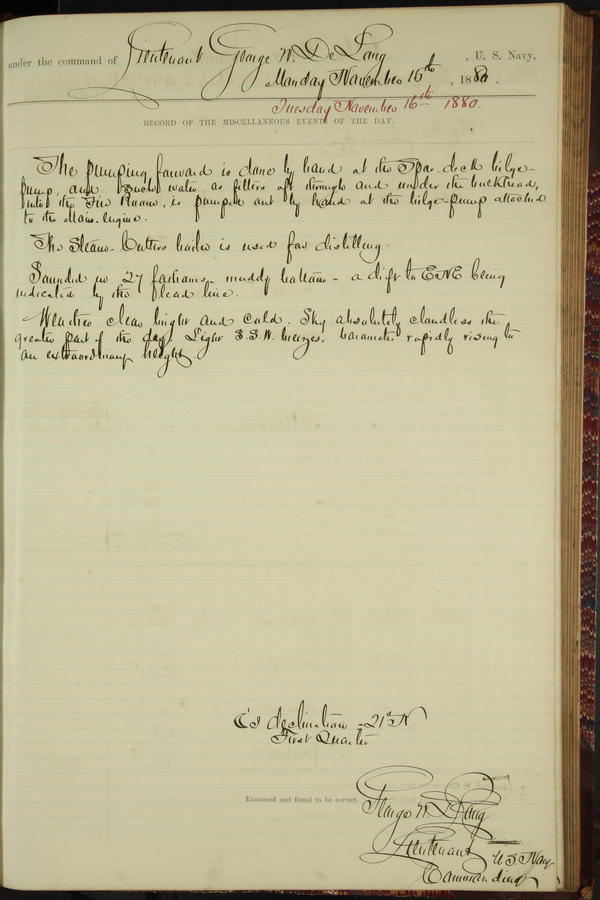 under the command of Lieutenant George W. De Long, U. S. Navy,
Monday November 15th, 1880.
Tuesday November 16th 1880.
RECORD OF THE MISCELLANEOUS EVENTS OF THE DAY.
The pumping forward is done by hand at the Spar-deck bilge-
pump, and such water as filters aft through and under the bulkhead,
into the Fire Room, is pumped out by hand at the bilge-pump attached
to the Main-engine.
The Steam-Cutters boiler is used for distilling.
Sounded in 27 fathoms - muddy bottom - a drift to ENE being
indicated by the lead line.
Weather clear bright and cold. Sky absolutely cloudless the
greater part of the day. Light S.S.W. breezes, barometer rapidly rising to
an extraordinary height.
declination - 21° N.
First Quarter
Examined and found to be correct.
George W. De Long
Lieutenant U.S. Navy
Commanding